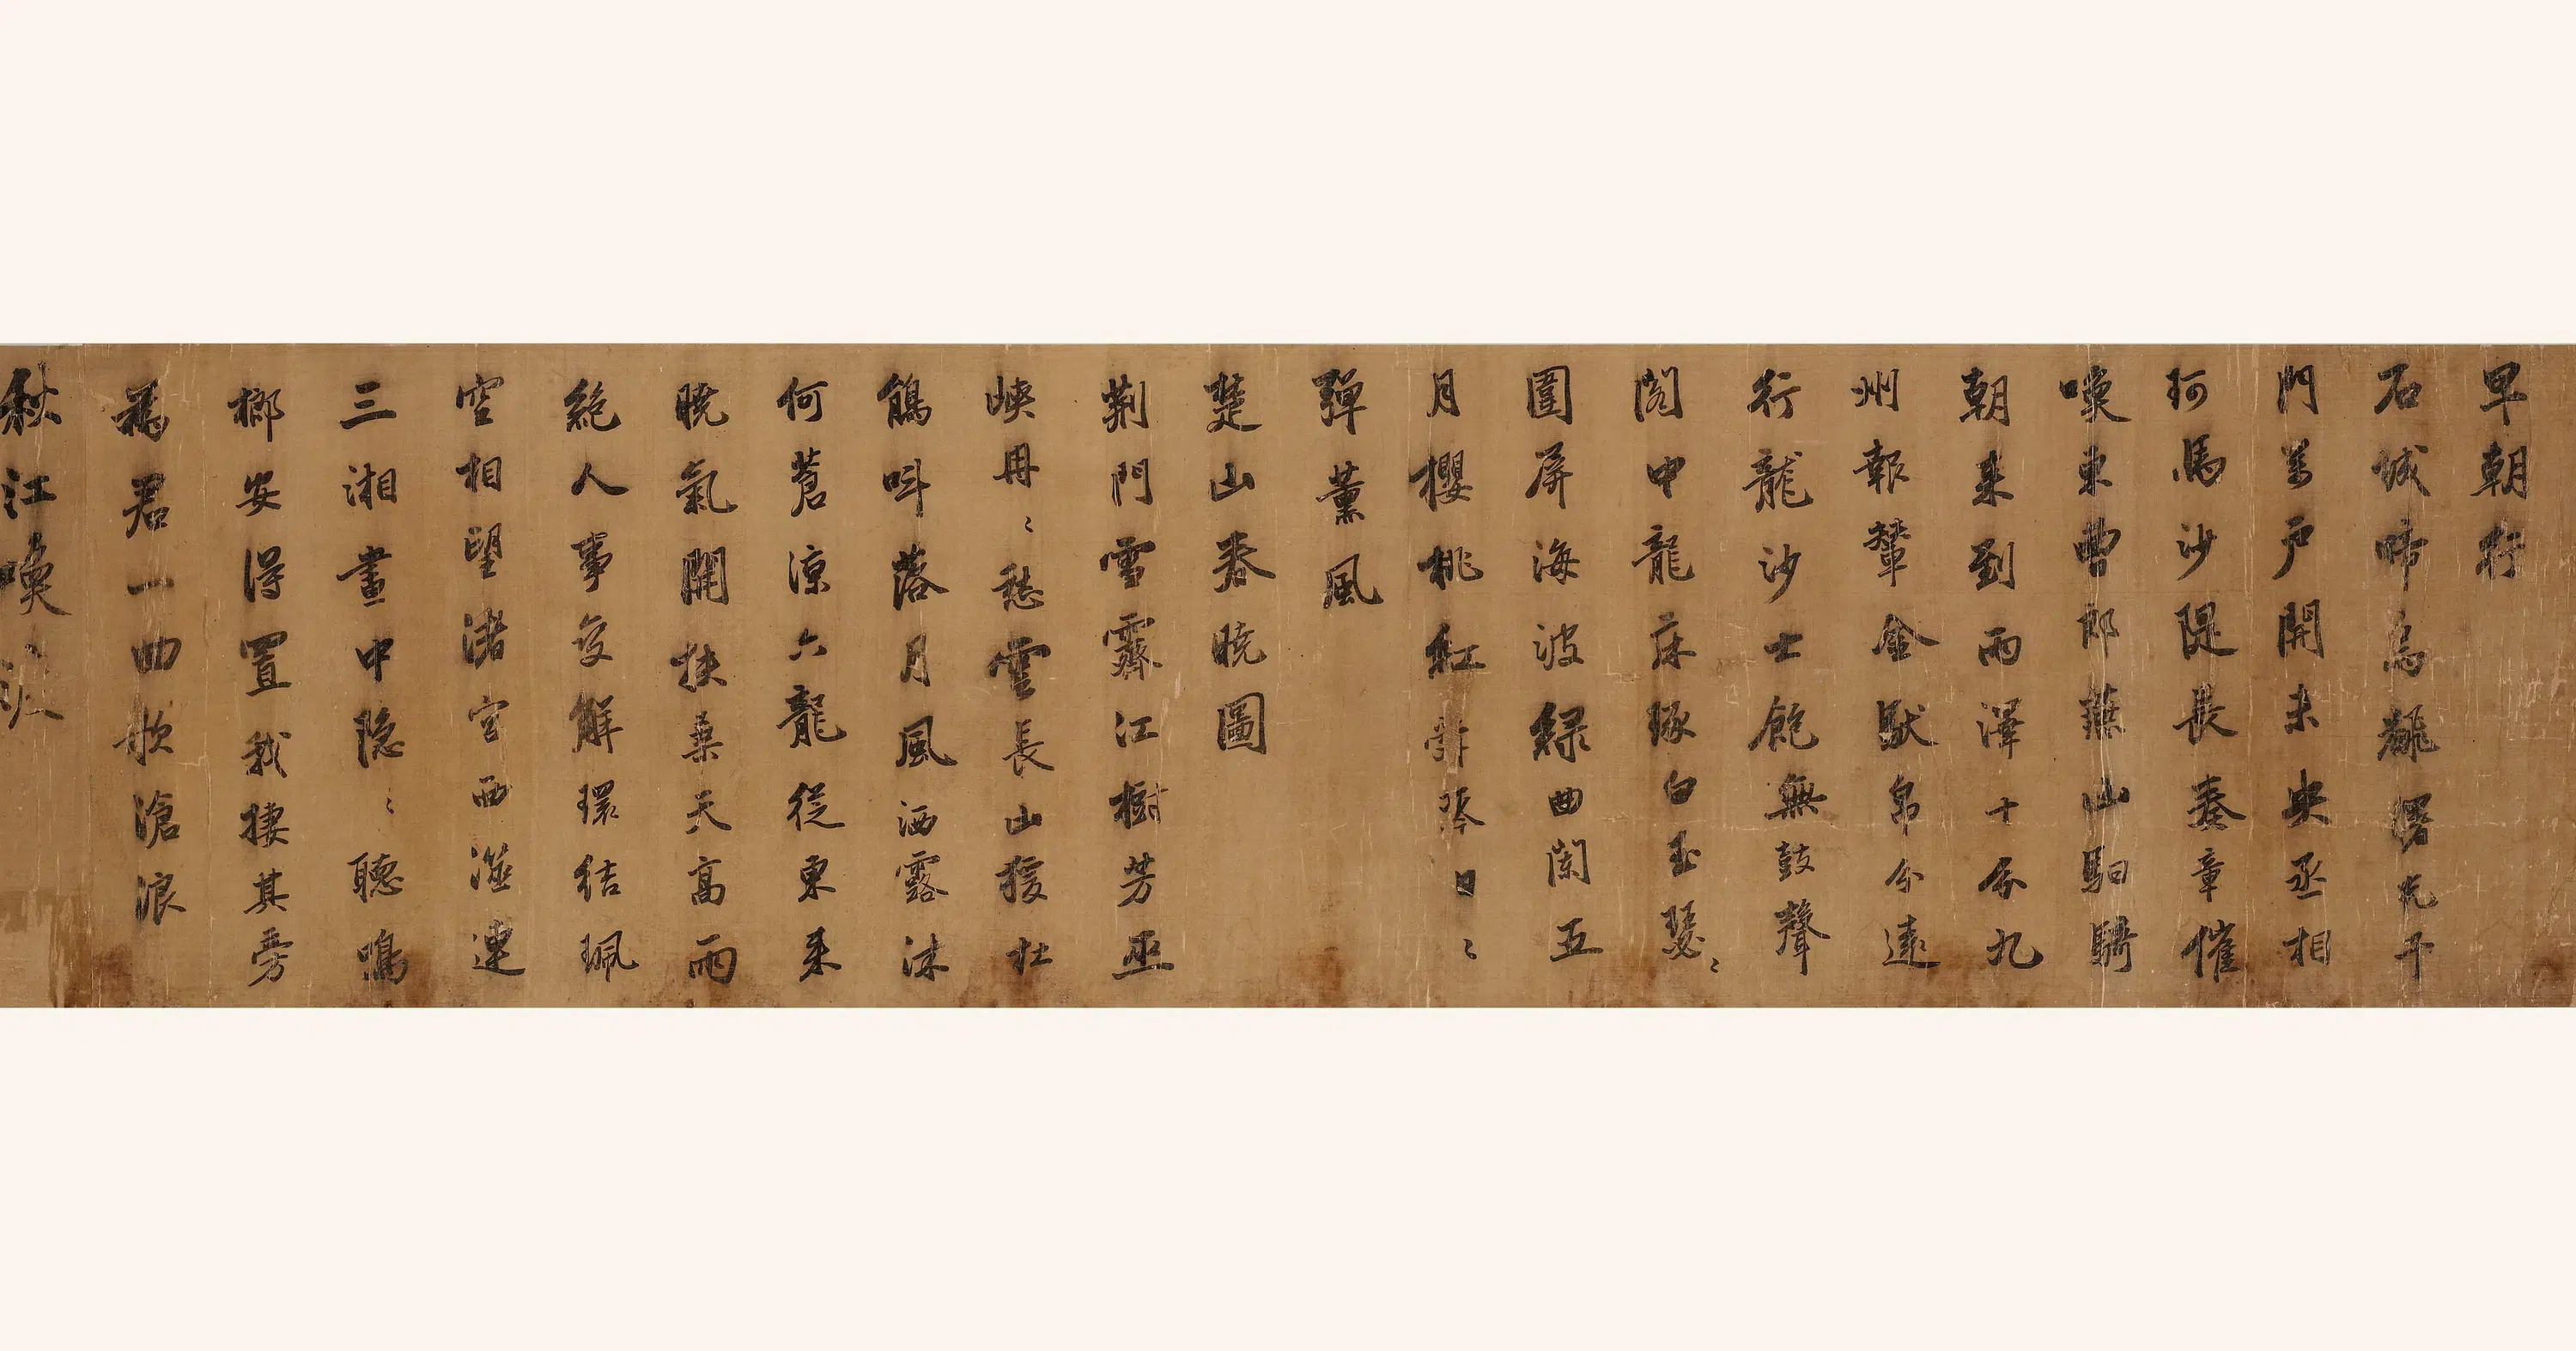 早朝行
石城啼烏龍曙光千
門萬戶開未央丞相
珂馬沙隄長奏章催
喚東曹郎燕山馹騎
朝來到雨澤十分九
州報輦金馱帛分遠
行龍沙士飽無鼓聲
閣中龍床琢白玉瑟〻
圍屏海波綠曲闌五
月櫻桃紅舜琴日〻
彈薰風
楚山春曉圖
荆門雪霽江樹芳巫
峽冉〻愁雲長山猨杜
鵑叫落月風洒露沐
何蒼凉六龍從東來
曉氣開扶桑天高雨
絕人事變解環結珮
空相望渚宮西澨連
三湘畫中隐〻聽鳴
榔安得置我棲其旁
為君一曲歌滄浪
秋江喚渡